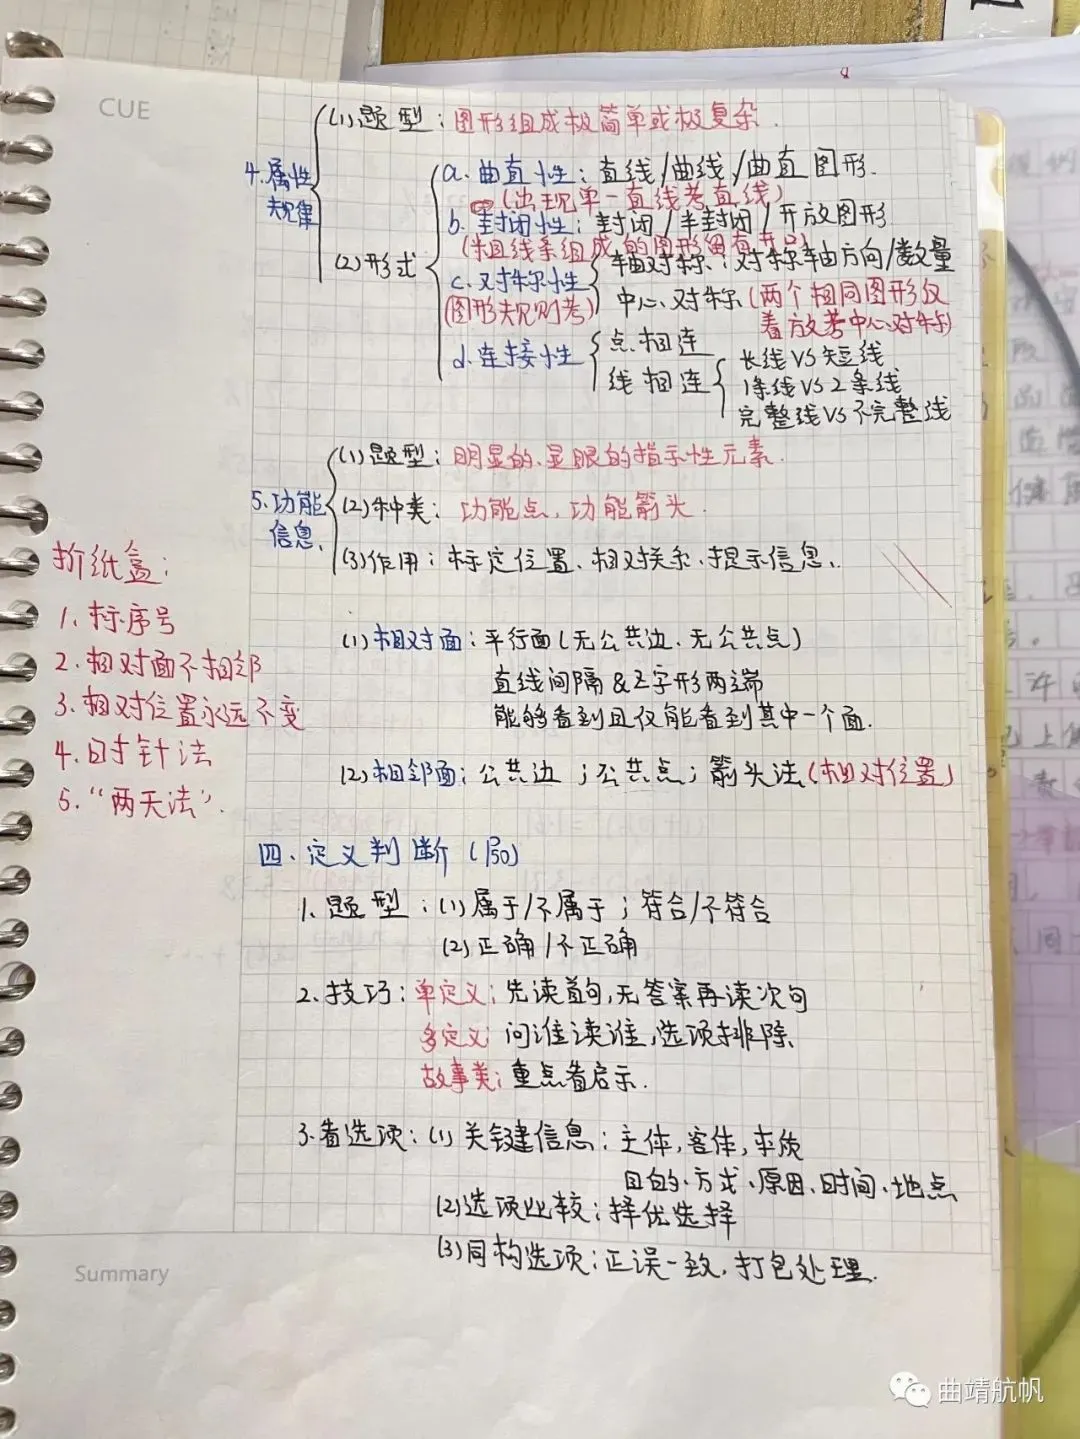 CUE
4.属性规律
(1)题型：图形组成极简单或极复杂.
(2)形式
a.曲直性：直线/曲线/曲直图形.
(出现单一直线考直线)
b.封闭性：封闭/半封闭/开放图形
(粗线条组成的图形留有开口)
c.对称性
(图形规则考)
轴对称：对称轴方向/数量
中心对称(两个相同图形仅
着放考中心对称)
d.连接性
点相连
线相连
长线VS短线
1条线VS2条线
完整线VS不完整线
5.功能信息.
(1)题型：明显的、显眼的指示性元素.
(2)种类：功能点、功能箭头.
(3)作用：标定位置、相对关系、提示信息.
折纸盒：
1.标序号
2.相对面不相邻
3.相对位置永远不变
4.时针法
5.“两天法”.
(1)相对面：平行面(无公共边、无公共点)
直线间隔&Z字形两端
能够看到且仅能看到其中一个面.
(2)相邻面：公共边；公共点；箭头法(相对位置)
四、定义判断(局)
1.题型：(1)属于/不属于；符合/不符合
(2)正确/不正确
2.技巧：单定义：先读首句,无答案再读次句
多定义：问谁读谁,选项排除.
故事类：重点看启示.
3.看选项：(1)关键信息：主体,客体,本质
目的、方式、原因、时间、地点
(2)选项比较：择优选择
(3)同构选项：正误一致,打包处理.
Summary
曲靖航帆